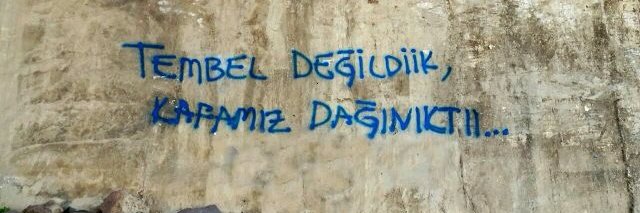 TEMBEL DEĞİLDİİK,
KAFAMIZ DAĞINIKTII...